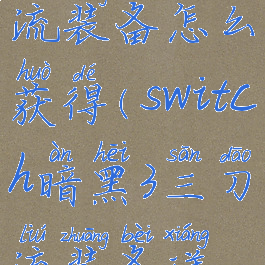 流装备怎么
huò dé
获得(switc
àn hēi sān dāo
h暗黑3三刀
liú zhuāng bèi xiáng
流装备详